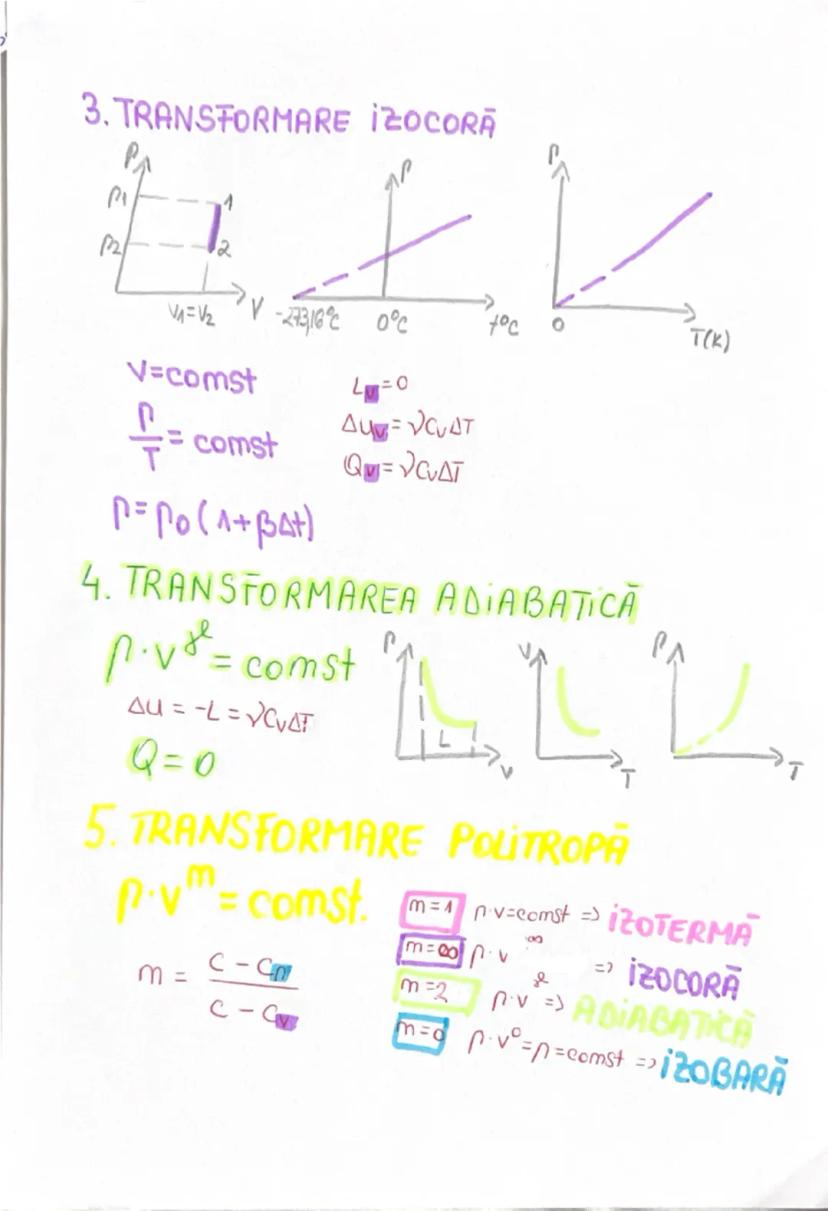 3. TRANSFORMARE IZOCORĂ
P
p1
1
p2
2
V1=V2
V
P
-273,16°C
0°C
t°C
P
0
T(K)
V=const
L_V=0
p/T = const
ΔU_V = νC_VΔT
Q_V = νC_VΔT
p=p0(1+βΔt)
4. TRANSFORMAREA ADIABATICĂ
p·V^γ = const
ΔU = -L = νC_VΔT
Q=0
P
L
V
V
T
P
T
5. TRANSFORMARE POLITROPĂ
p·V^n = const.
n = (C - C_p)/(C - C_v)
n=1 p·v=const => IZOTERMĂ
n=∞ p·v^∞ => IZOCORĂ
n=γ p·v^γ => ADIABATICĂ
n=0 p·v^0=p=const => IZOBARĂ